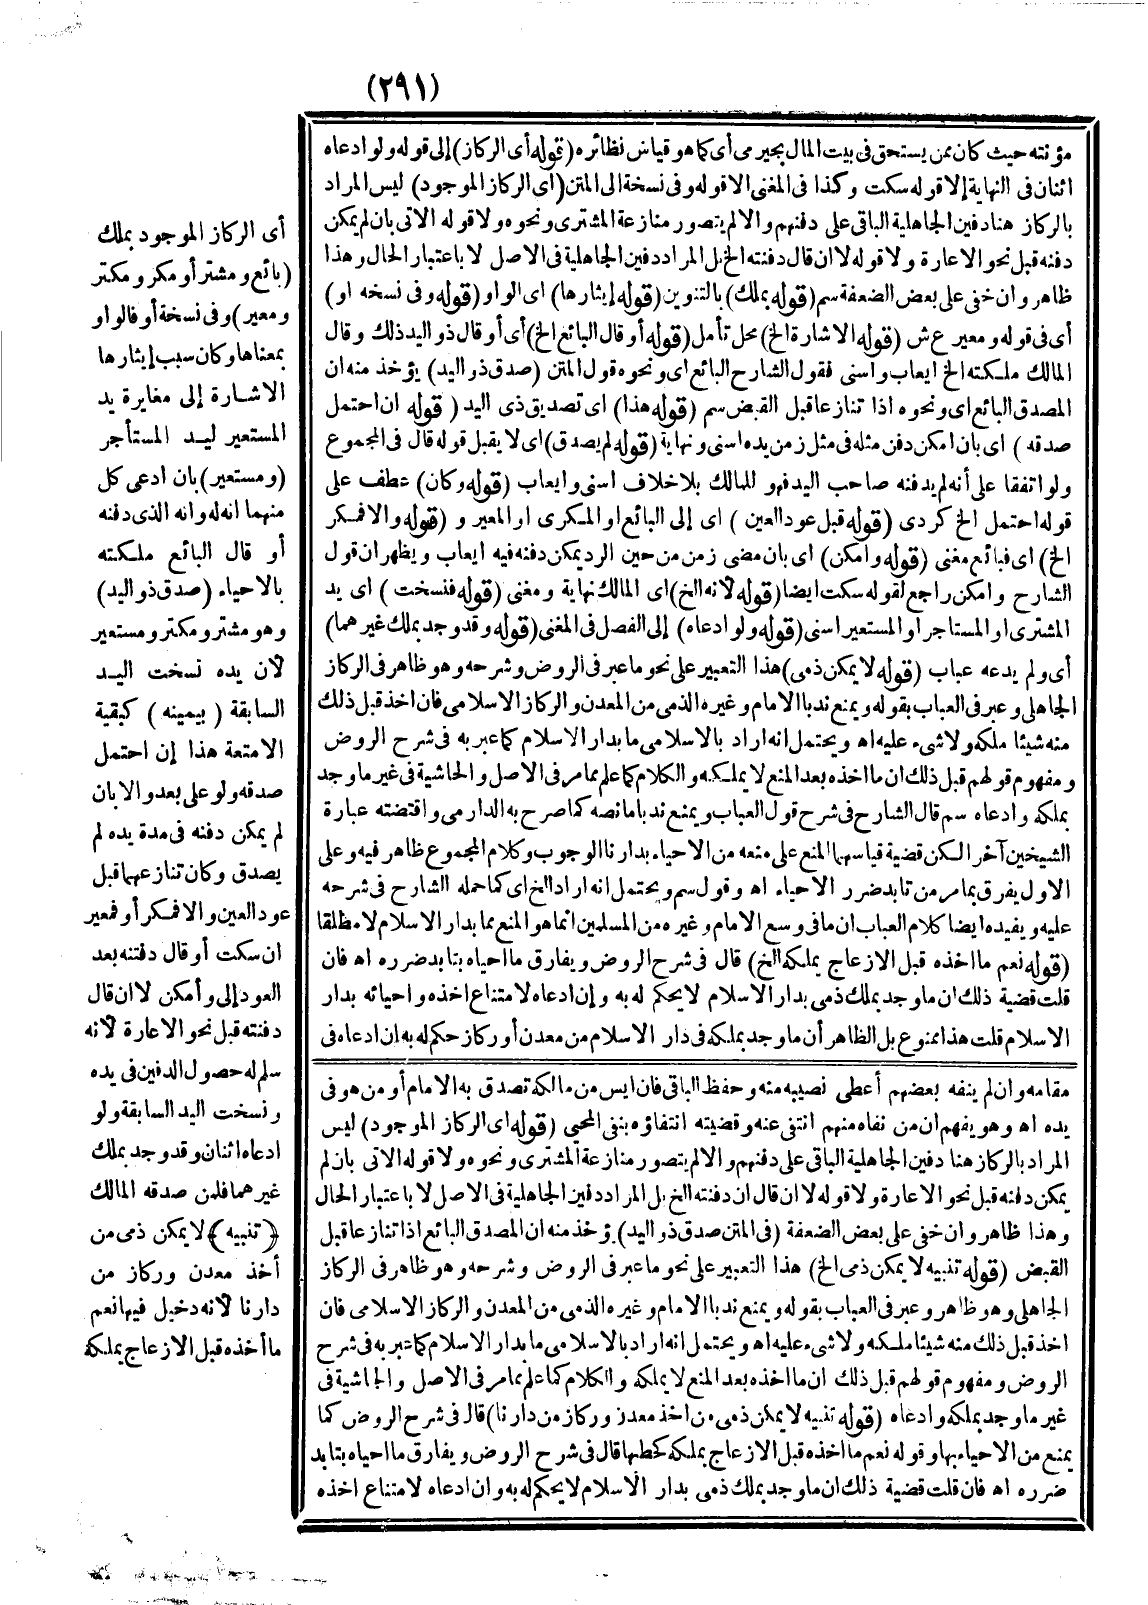 (٢٩١)
مؤنته حيث كان ممن يستحق فى بيت المال بجيرمى أى كما هو قياس نظائره (قوله أى الركاز) إلى قوله ولو ادعاه
اثنان فى النهاية إلا قوله سكت وكذا فى المغنى الا قوله وفى نسخة الى المتن (اى الركاز الموجود) ليس المراد
بالركاز هنا دفين الجاهلية الباقى على دفنهم والالم يتصور منازعة المشترى ونحوه ولا قوله الاتى بان لم يمكن
دفنه قبل نحو الاعارة ولا قوله لا ان قال دفنته الخ بل المراد دفين الجاهلية فى الاصل لا باعتبار الحال وهذا
ظاهر وان خفى على بعض الضعفة سم (قوله بملك) بالتنوين (قوله إيثارها) اى الواو (قوله وفى نسخه او)
أى فى قوله ومعير ع ش (قوله الاشارة الخ) محل تأمل (قوله أو قال البائع الخ) أى أو قال ذو اليد ذلك وقال
المالك ملكته الخ ايعاب واسنى فقول الشارح البائع اى ونحوه قول المتن (صدق ذو اليد) يؤخذ منه ان
المصدق البائع اى ونحوه اذا تنازعا قبل القبض سم (قوله هذا) اى تصديق ذى اليد (قوله ان احتمل
صدقه) اى بان امكن دفن مثله فى مثل زمن يده اسنى ونهاية (قوله لم يصدق) اى لا يقبل قوله قال فى المجموع
ولو اتفقا على أنه لم يدفنه صاحب اليد فهو للمالك بلا خلاف اسنى وايعاب (قوله وكان) عطف على
قوله احتمل الخ كردى (قوله قبل عود العين) اى إلى البائع او المكرى او المعير و (قوله والا فمكر
الخ) اى فبائع مغنى (قوله وامكن) اى بان مضى زمن من حين الرد يمكن دفنه فيه ايعاب ويظهر ان قول
الشارح وامكن راجع لقوله سكت ايضا (قوله لانه الخ) اى المالك نهاية ومغنى (قوله فنسخت) اى يد
المشترى او المستاجر او المستعير اسنى (قوله ولو ادعاه) إلى الفصل فى المغنى (قوله وقد وجد بملك غيرهما)
أى ولم يدعه عباب (قوله لا يمكن ذمى) هذا التعبير على نحو ما عبر فى الروض وشرحه وهو ظاهر فى الركاز
الجاهلى وعبر فى العباب بقوله ويمنع ندبا الامام وغيره الذمى من المعدن والركاز الاسلامى فان اخذ قبل ذلك
منه شيئا ملكه ولا شىء عليه اه ويحتمل انه اراد بالاسلامى ما بدار الاسلام كما عبر به فى شرح الروض
ومفهوم قولهم قبل ذلك ان ما اخذه بعد المنع لا يملكه والكلام كما علم مما مر فى الاصل والحاشية فى غير ما وجد
بملكه وادعاه سم قال الشارح فى شرح قول العباب ويمنع ندبا ما نصه كما صرح به الدارمى واقتضته عبارة
الشيخين آخر السكن قضية قياسهما المنع على منعه من الاحياء بدارنا الوجوب وكلام المجموع ظاهر فيه وعلى
الاول يفرق بما مر من تابد ضرر الاحياء اه وقول سم ويحتمل انه اراد الخ اى كما حمله الشارح فى شرحه
عليه ويفيده ايضا كلام العباب ان ما فى وسع الامام وغيره من المسلمين انما هو المنع بما بدار الاسلام لا مطلقا
(قوله نعم ما اخذه قبل الازعاج يملكه الخ) قال فى شرح الروض ويفارق ما احياه بتابد ضرره اه فان
قلت قضية ذلك ان ما وجد بملك ذمى بدار الاسلام لا يحكم له به وإن ادعاه لامتناع اخذه واحيائه بدار
الاسلام قلت هذا ممنوع بل الظاهر أن ما وجد بملكه فى دار الاسلام من معدن أو ركاز حكم له به ان ادعاه فى
مقامه وان لم ينفه بعضهم أعطى نصيبه منه وحفظ الباقى فان ايس من مالكه تصدق به الامام أو من هو فى
يده اه وهو يفهم ان من نفاه منهم انتفى عنه وقضيته انتفاؤه بنفى المحيى (قوله اى الركاز الموجود) ليس
المراد بالركاز هنا دفين الجاهلية الباقى على دفنهم والالم يتصور منازعة المشترى ونحوه ولا قوله الاتى بان لم
يمكن دفنه قبل نحو الاعارة ولا قوله لا ان قال ان دفنته الخ بل المراد دفين الجاهلية فى الاصل لا باعتبار الحال
وهذا ظاهر وان خفى على بعض الضعفة (فى المتن صدق ذو اليد) يؤخذ منه ان المصدق البائع اذا تنازعا قبل
القبض (قوله تنبيه لا يمكن ذمى الخ) هذا التعبير على نحو ما عبر فى الروض وشرحه وهو ظاهر فى الركاز
الجاهلى وهو ظاهر وعبر فى العباب بقوله ويمنع ندبا الامام وغيره الذمى من المعدن والركاز الاسلامى فان
اخذ قبل ذلك منه شيئا ملكه ولا شىء عليه اه ويحتمل انه اراد بالاسلامى ما بدار الاسلام كما عبر به فى شرح
الروض ومفهوم قولهم قبل ذلك ان ما اخذه بعد المنع لا يملكه والكلام كما علم مما مر فى الاصل والحاشية فى
غير ما وجد بملكه وادعاه (قوله تنبيه لا يمكن ذمى من اخذ معدن وركاز من دارنا) قال فى شرح الروض كما
يمنع من الاحياء بها وقوله نعم ما اخذه قبل الازعاج يملكه كحطبها قال فى شرح الروض ويفارق ما احياه بتابد
ضرره اه فان قلت قضية ذلك ان ما وجد بملك ذمى بدار الاسلام لا يحكم له به وان ادعاه لامتناع اخذه
أى الركاز الموجود بملك
(بائع ومشتر أو مكر ومكتر
ومعير) وفى نسخة أو فالواو
بمعناها وكان سبب إيثارها
الاشارة إلى مغايرة يد
المستعير ليد المستأجر
(ومستعير) بان ادعى كل
منهما انه له وانه الذى دفنه
أو قال البائع ملكته
بالاحياء (صدق ذو اليد)
وهو مشتر ومكتر ومستعير
لان يده نسخت اليد
السابقة (بيمينه) كبقية
الامتعة هذا إن احتمل
صدقه ولو على بعد والا بان
لم يمكن دفنه فى مدة يده لم
يصدق وكان تنازعهما قبل
عود العين والا فمكر أو فمعير
ان سكت أو قال دفنته بعد
العود إلى وأمكن لا ان قال
دفنته قبل نحو الاعارة لانه
سلم له حصول الدفين فى يده
ونسخت اليد السابقة ولو
ادعاه اثنان وقد وجد بملك
غيرهما فلمن صدقه المالك
(تنبيه) لا يمكن ذمى من
أخذ معدن وركاز من
دارنا لانه دخيل فيها نعم
ما أخذه قبل الازعاج يملكه